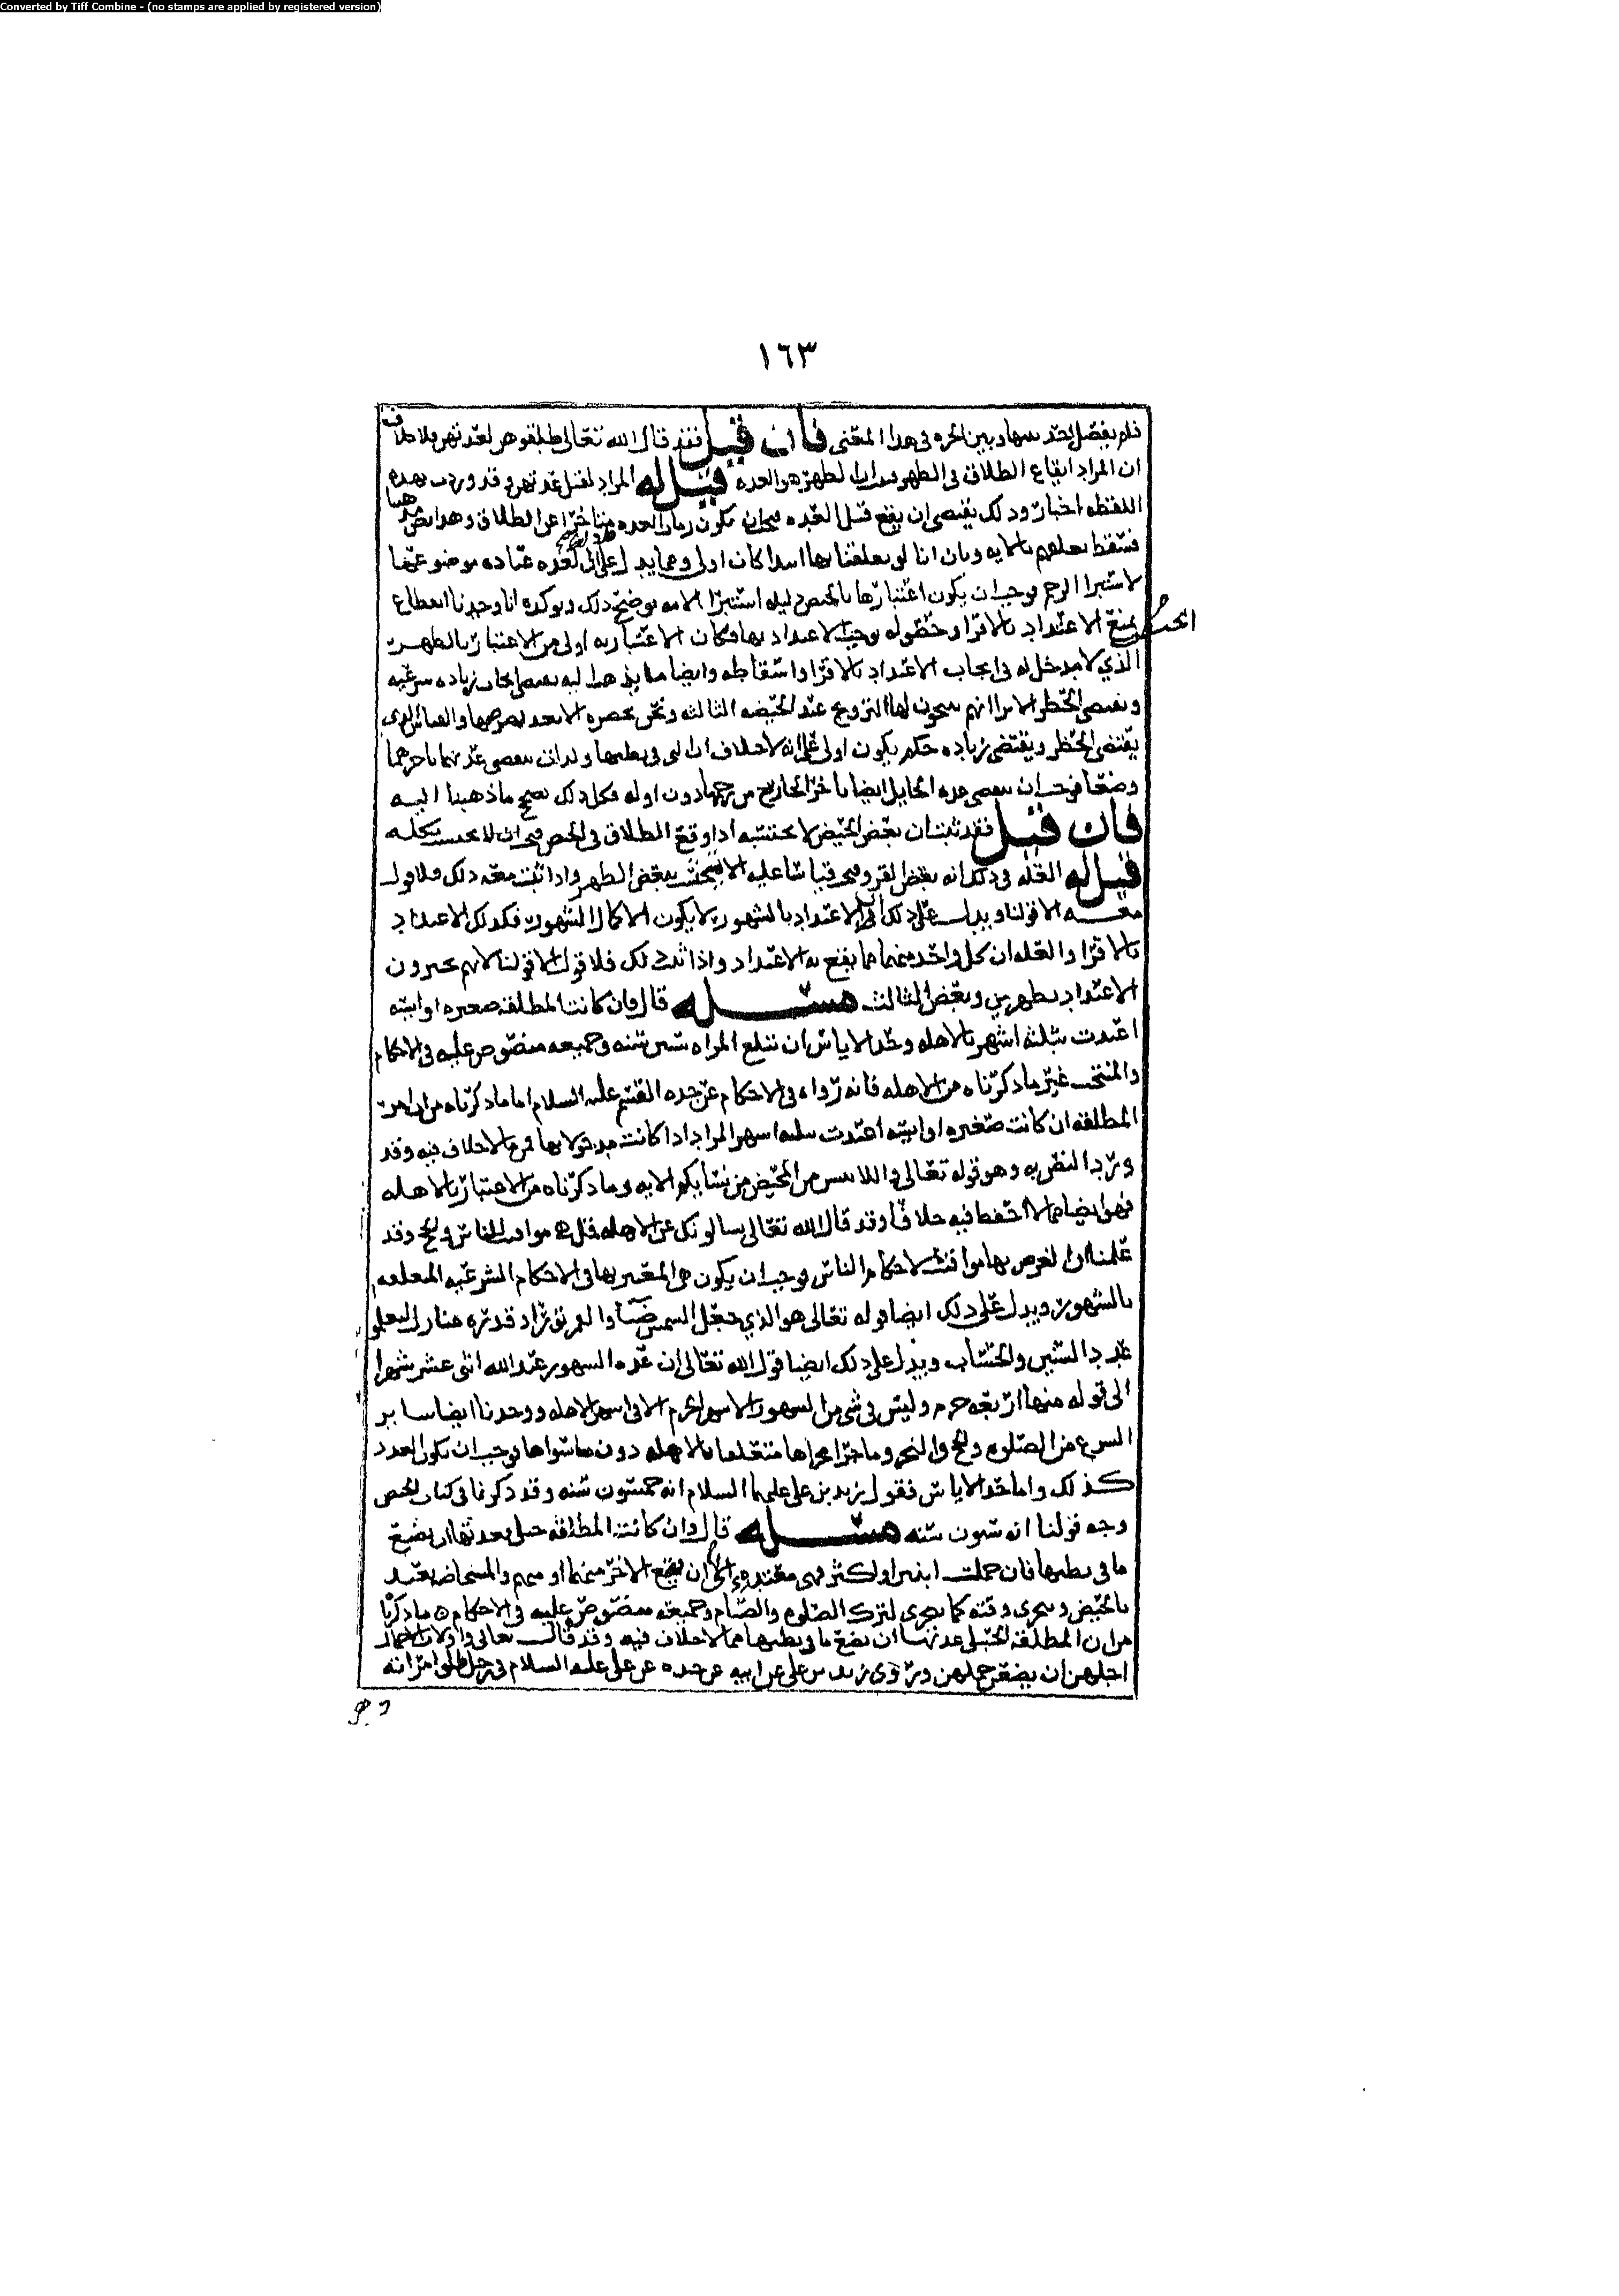 Converted by Tiff Combine - (no stamps are applied by registered version)
١٦٣
فلم يفصل احد بينها وبين الحره في هذا المعنى فان قيل فقد قال الله تعالى فطلقوهن لعدتهن ولا خلاف
ان المراد ايقاع الطلاق في الطهر ان الطهر هو العده قيل له المراد لقبل عدتهن وقد وردت بهذه
اللفظه اخبار وذلك يقتضي ان يقع قبل العده فيجب ان يكون زمان العده متاخرا عن الطلاق وهذا
فسقط تعلقهم بالايه وبان انا لو تعلقنا بها كان اولى ومما يدل على ان العده عباده موضوعها
لاستبرا الرحم فوجب ان يكون اعتبارها بالحيض دليله استبرا الامه يوضح ذلك ويوكده انا وجدنا انقطاع
الحيض يمنع الاعتداد بالاقرا وحصوله يوجب الاعتداد بها فكان الاعتبار به اولى من الاعتبار بالطهر
الذي لا مدخل له في ايجاب الاعتداد بالاقرا واسقاطه وايضا ما يذهب اليه يقتضي ايجاب زياده شرعيه
ويقتضي الحظر الا ترا انهم يبيحون لها التزويج عند الحيضه الثالثه ونحن نحضره الا بعد والقياس الذي
يقتضي الحظر ويقتضي زياده حكم يكون اولى على انه لا خلاف ان التي في بطنها ولدان تنقضي عدتها باخرهما
وضعا فوجب ان تنقضي عده الحايل ايضا باخر الخارج من رحمها دون اوله فكل ذلك يصحح ما ذهبنا اليه
فان قيل فقد ثبت ان بعض الحيض لا يحتسب اذا وقع الطلاق في الحيض فيجب ان لا يحتسب بكله
قيل له العله في ذلك انه بعض القرو فيجب قياسا عليه الا يحتسب ببعض الطهر واذا ثبت معه ذلك فلا قول
معه الا قولنا ويدل على ذلك ان الاعتداد بالشهور لا يكون الا بكمال الشهور فكذلك الاعتداد
بالاقرا والعله ان كل واحد منهما مما يقع به الاعتداد واذا ثبت ذلك فلا قول الا قولنا لانهم يجيزون
الاعتداد بطهرين وبعض الثالث مسئله قال وان كانت المطلقه صغيره او ايسه
اعتدت بثلثه اشهر بالاهله وحد الاياس ان تبلغ المراه ستين سنه وجميعه منصوص عليه في الاحكام
والمنتخب غير ما ذكرناه من الاهله فانه رواه في الاحكام عن جده القسم عليه السلام اما ما ذكرناه من ان
المطلقه ان كانت صغيره او ايسه اعتدت بثلثه اشهر المراد اذا كانت مدخولا بها فمما لا خلاف فيه وقد
ورد النص به وهو قوله تعالى واللا يئسن من المحيض من نسايكم الايه وما ذكرناه من الاعتبار بالاهله
فهو ايضا مما لا احفظ فيه خلافا وقد قال الله تعالى يسالونك عن الاهله قل هي مواقيت للناس والحج وقد
علمنا ان الغرض بها مواقيت لاحكام الناس فوجب ان يكون هي المعتبر بها في الاحكام الشرعيه المعلقه
بالشهور ويدل على ذلك ايضا قوله تعالى هو الذي جعل الشمس ضياء والقمر نورا وقدره منازل لتعلموا
عدد السنين والحساب ويدل على ذلك ايضا قول الله تعالى ان عده الشهور عند الله اثنى عشر شهرا
الى قوله منها اربعه حرم وليس في شي من الشهور الاشهر الحرم الا في اشهر الاهله ووجدنا ايضا ساير
الشرع من الصلوه والحج والنحر وما جرا مجراها متعلقا بالاهله دون ما سواها فوجب ان تكون العدد
كذلك واما حد الاياس فقول زيد بن علي عليهما السلام انه خمسون سنه وقد ذكرنا في كتاب الحيض
وجه قولنا انه ستون سنه مسئله قال وان كانت المطلقه حبلى فعدتها ان يضع
ما في بطنها فان حملت اثنين او اكثر فهي معتده الى ان يضع الاخر منهما او منهم والمستحاضه تعتد
بالحيض وتتحرى وقته كما تتحرى لترك الصلوه والصيام وجميعه منصوص عليه في الاحكام ما ذكرنا
من ان المطلقه الحبلى عدتها ان تضع ما في بطنها مما لا خلاف فيه وقد قال تعالى واولات الاحمال
اجلهن ان يضعن حملهن وروى زيد بن علي عن ابيه عن جده عن علي عليه السلام في رجل طلق امراته